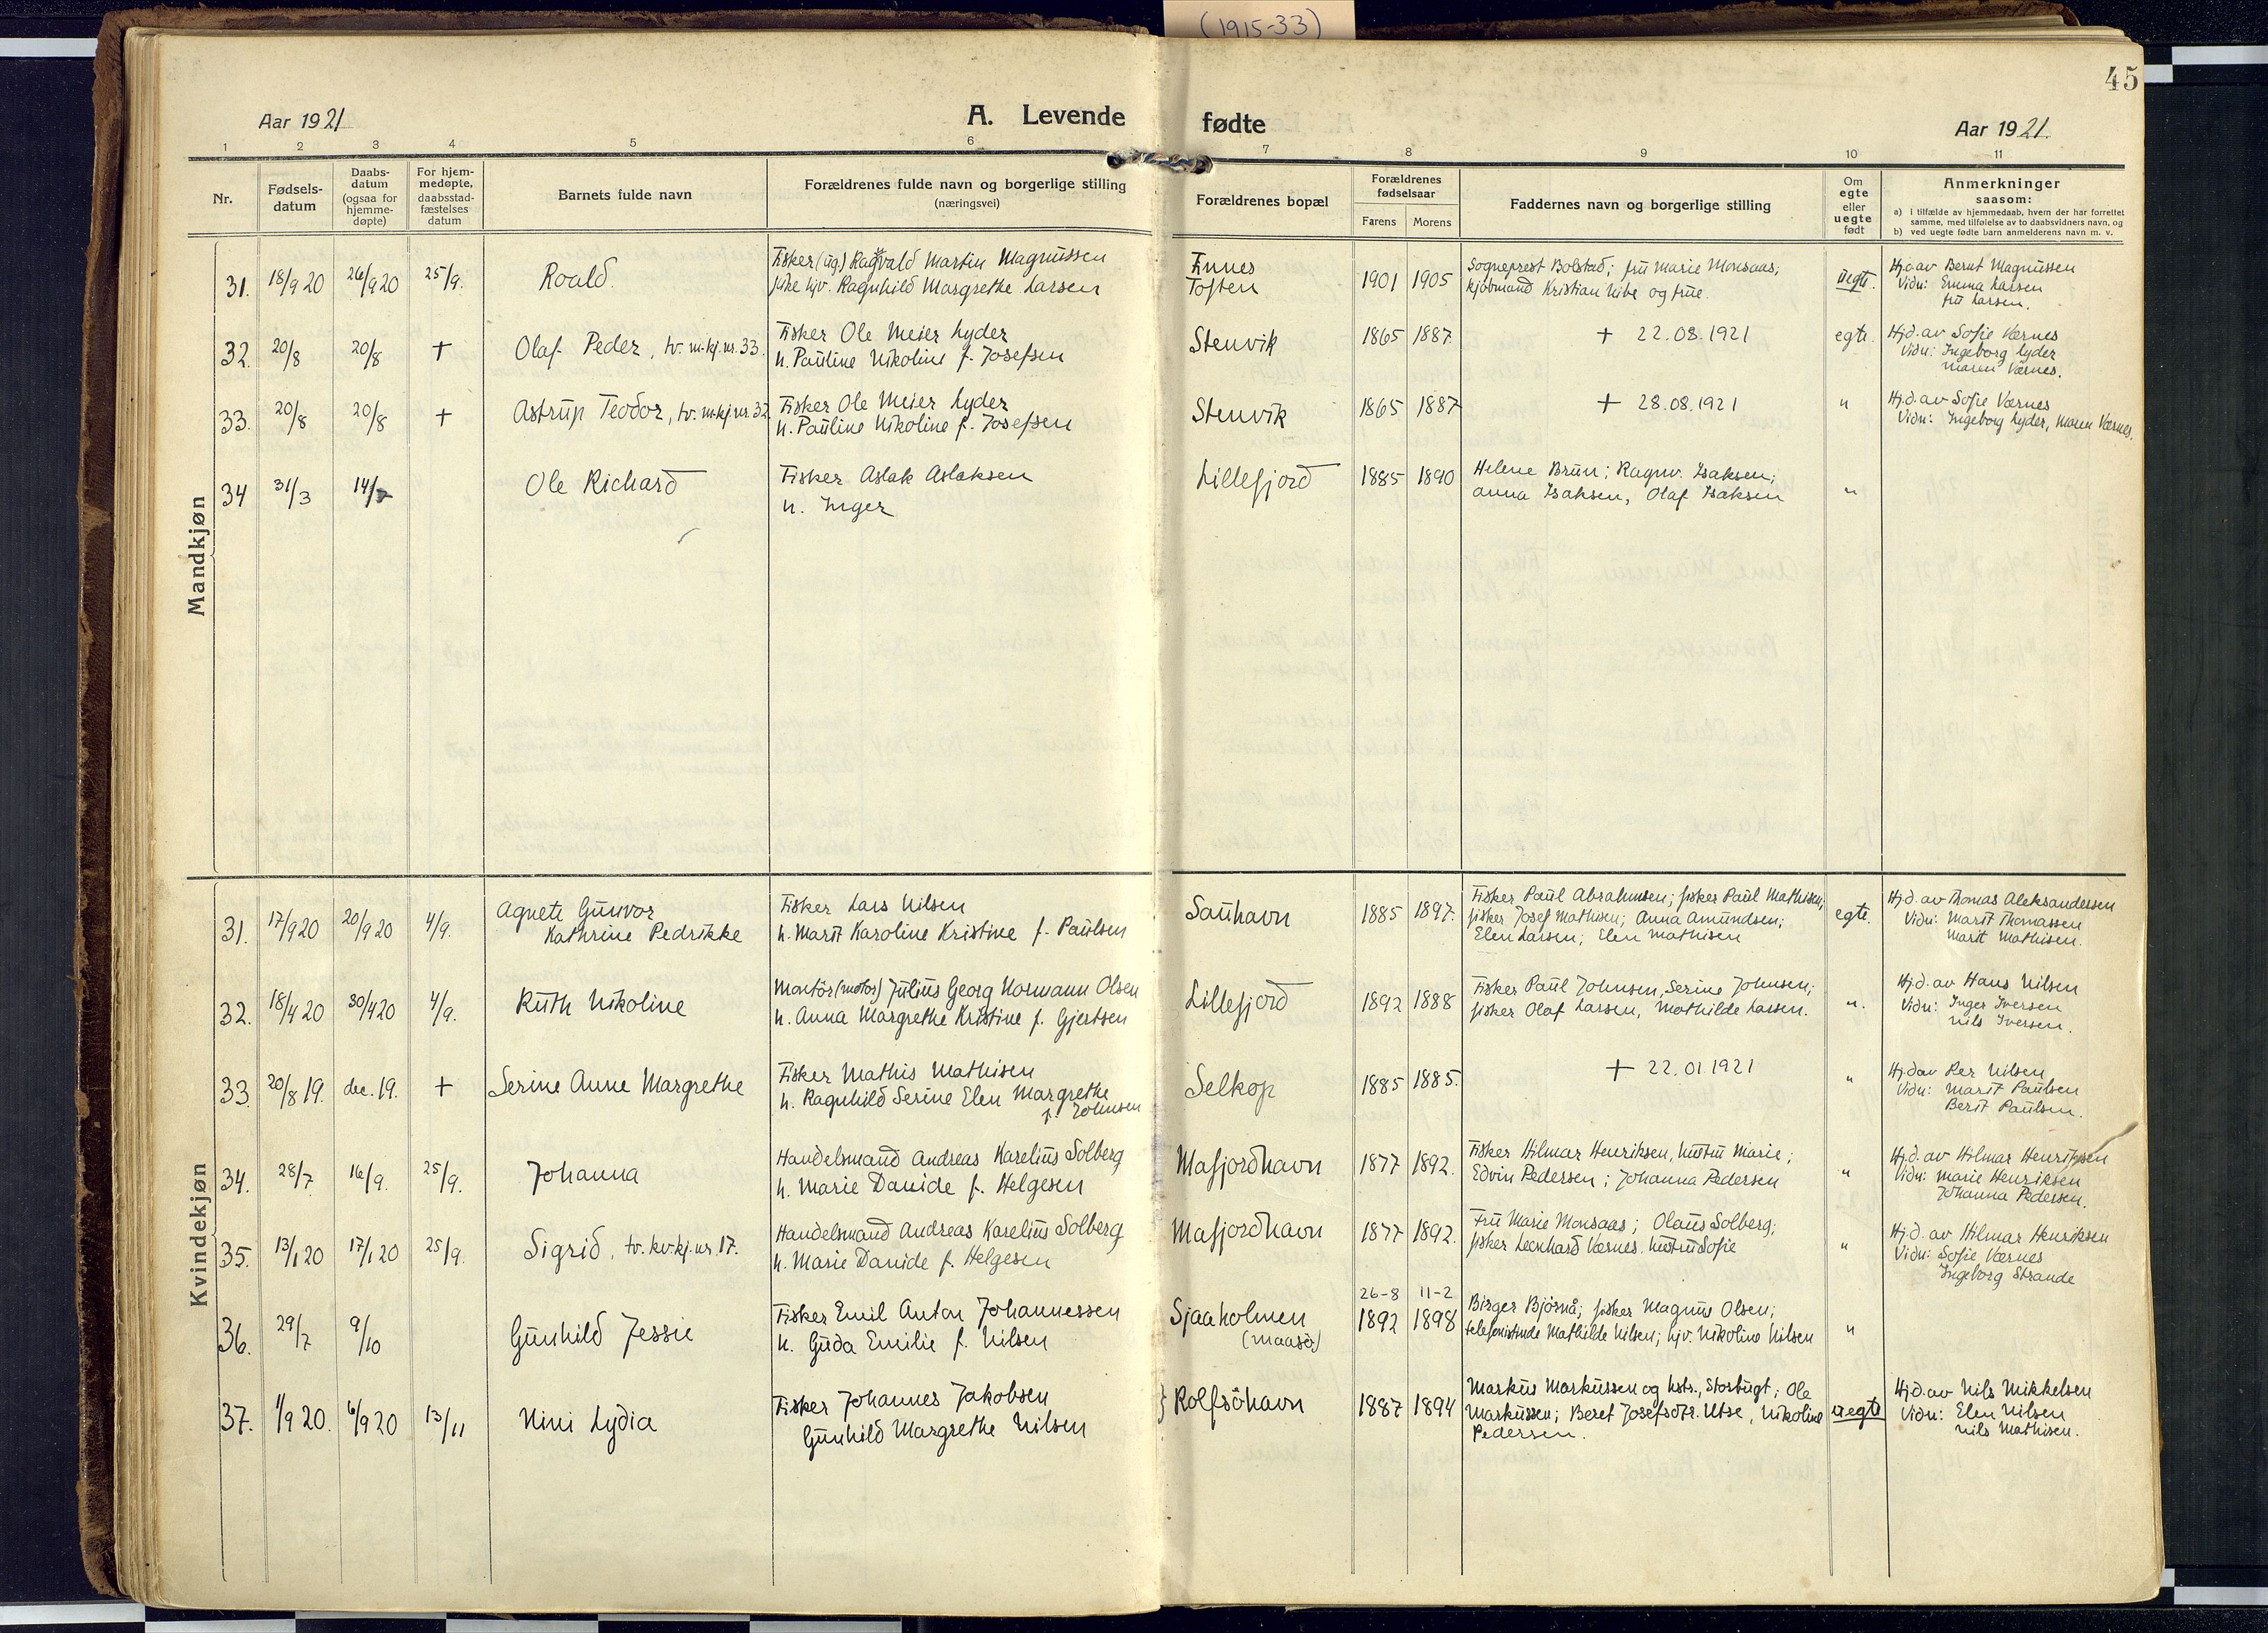 (1915-33)
45
Aar 1921
A. Levende fødte
Aar 1921.
1 2 3 4 5 6 7 8 9 10 11
Nr.
Fødsels-
datum
Daabs-
datum
(ogsaa for
hjemme-
døpte)
For hjem-
medøpte,
daabsstad-
fæstelses
datum
Barnets fulde navn
Forældrenes fulde navn og borgerlige stilling
(næringsvei)
Forældrenes bopæl
Forældrenes
fødselsaar
Farens Morens
Faddernes navn og borgerlige stilling
Om
egte
eller
uegte
født
Anmerkninger
saasom:
a) i tilfælde av hjemmedaab, hvem der har forrettet
samme, med tilføielse av to daabsvidners navn, og
b) ved uegte fødte barn anmelderens navn m. v.
Mandkjøn
31. 18/9 20 26/9 20 25/9. Roald.
Fisker (ug.) Ragvald Martin Magnussen
pike hjv. Ragnhild Margrethe Larsen
Finnes
Toften
1901 1905
Sogneprest Bolstad; fru Marie Monsaas;
kjøbmand Kristian Nibe og frue.
uegte.
Hj.d. av Bernt Magnussen
Vidn: Emma Larsen
fru Larsen.
32. 20/8 20/8 + Olaf Peder, tv. m. kj. nr. 33.
Fisker Ole Meier Lyder
h. Pauline Nikoline f. Josefsen
Stenvik
1865 1887.
+ 22.08.1921
egte.
Hj.d. av Sofie Værnes
Vidn: Ingeborg Lyder
Maren Værnes.
33. 20/8 20/8 + Astrup Teodor, tv. m. kj. nr. 32.
Fisker Ole Meier Lyder
h. Pauline Nikoline f. Josefsen
Stenvik
1865 1887
+ 28.08.1921
"
Hj.d. av Sofie Værnes
Vidn: Ingeborg Lyder, Maren Værnes.
34 31/3 14/7 Ole Richard
Fisker Aslak Aslaksen
h. Inger
Lillefjord
1885 1890
Helene Brun; Ragnv. Isaksen;
Anna Isaksen, Olaf Isaksen
"
Kvindekjøn
31. 17/9 20 20/9 20 4/9. Agnete Gunvor
Kathrine Pedrikke
Fisker Lars Nilsen
h. Marit Karoline Kristine f. Paulsen
Sauhavn
1885 1897.
Fisker Paul Abrahamsen; fisker Paul Mathisen;
fisker Josef Mathisen; Anna Amundsen;
Elen Larsen; Elen Mathisen
egte.
Hj.d. av Thomas Aleksandersen
Vidn: Marit Thomassen
Marit Mathisen.
32. 18/4 20 30/4 20 4/9. Ruth Nikoline
Montör (motor) Julius Georg Normann Olsen
h. Anna Margrethe Kristine f. Gjertsen
Lillefjord
1892 1888
Fisker Paul Johnsen, Serine Johnsen;
fisker Olaf Larsen, Mathilde Larsen.
".
Hj.d. av Hans Nilsen
Vidn: Inger Iversen
Nils Iversen.
33. 20/8 19. dec. 19. + Serine Anne Margrethe
Fisker Mathis Mathisen
h. Ragnhild Serine Elen Margrethe
f. Johnsen
Selkop
1885 1885.
+ 22.01.1921
"
Hj.d av Per Nilsen
Vidn: Marit Paulsen
Berit Paulsen.
34. 28/7 16/9. 25/9. Johanna
Handelsmand Andreas Karelius Solberg
h. Marie Danide f. Helgesen
Mafjordhavn
1877 1892.
Fisker Hilmar Henriksen, hustru Marie;
Edvin Pedersen; Johanna Pedersen
"
Hj.d. av Hilmar Henriksen
Vidn: Marie Henriksen
Johanna Pedersen.
35. 13/1 20 17/1 20 25/9. Sigrid, tv. kv. kj. nr. 17.
Handelsmand Andreas Karelius Solberg
h. Marie Danide f. Helgesen
Mafjordhavn
1877 1892.
Fru Marie Monsaas; Olaus Solberg;
fisker Leonhard Værnes. hustru Sofie
"
Hj.d. av Hilmar Henriksen
Vidn: Sofie Værnes
Ingeborg Strande
36. 29/7 9/10 Gunhild Jessie
Fisker Emil Anton Johannessen
h. Guda Emilie f. Nilsen
Sjaaholmen
(Maasö)
26-8 11-2
1892 1898
Birger Bjørnå; fisker Magnus Olsen;
telefonistinde Mathilde Nilsen; hjv. Nikoline Nilsen
"
37. 1/9 20. 6/9 20 13/11 Nini Lydia
Fisker Johannes Jakobsen
Gunhild Margrethe Nilsen
} Rolfsöhavn
1887 1894
Markus Markussen og hstr., Storbugt; Ole
Markussen; Beret Josefsdtr. Utse, Nikoline
Pedersen.
uegte
Hj.d. av Nils Mikkelsen
Vidn: Elen Nilsen
Nils Mathisen.